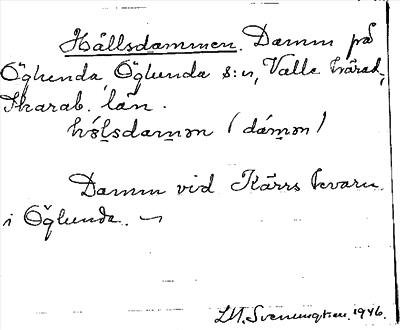 Hällsdammen. Damm på
Öglunda Öglunda s:n, Valle härad,
Skarab. län.
hǿlsdamən (dámən)
Damm vid Kärrs kvarn
i Öglunda.
LM. Svenungsson. 1946.